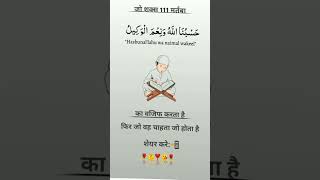 जो शख्स 111 मर्तबा
حَسْبُنَا اللَّهُ وَنِعْمَ الْوَكِيلُ
"Hasbunallahu wa naimal wakeel"
का वजिफ करता है
फिर जो वह चाहता जो होता है
शेयर करे:-